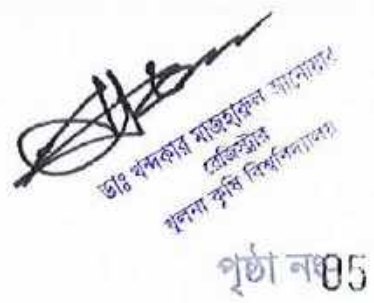 ডাঃ খন্দকার মাজহারুল আনোয়ার
রেজিস্ট্রার
খুলনা কৃষি বিশ্ববিদ্যালয়
পৃষ্ঠা নং 05